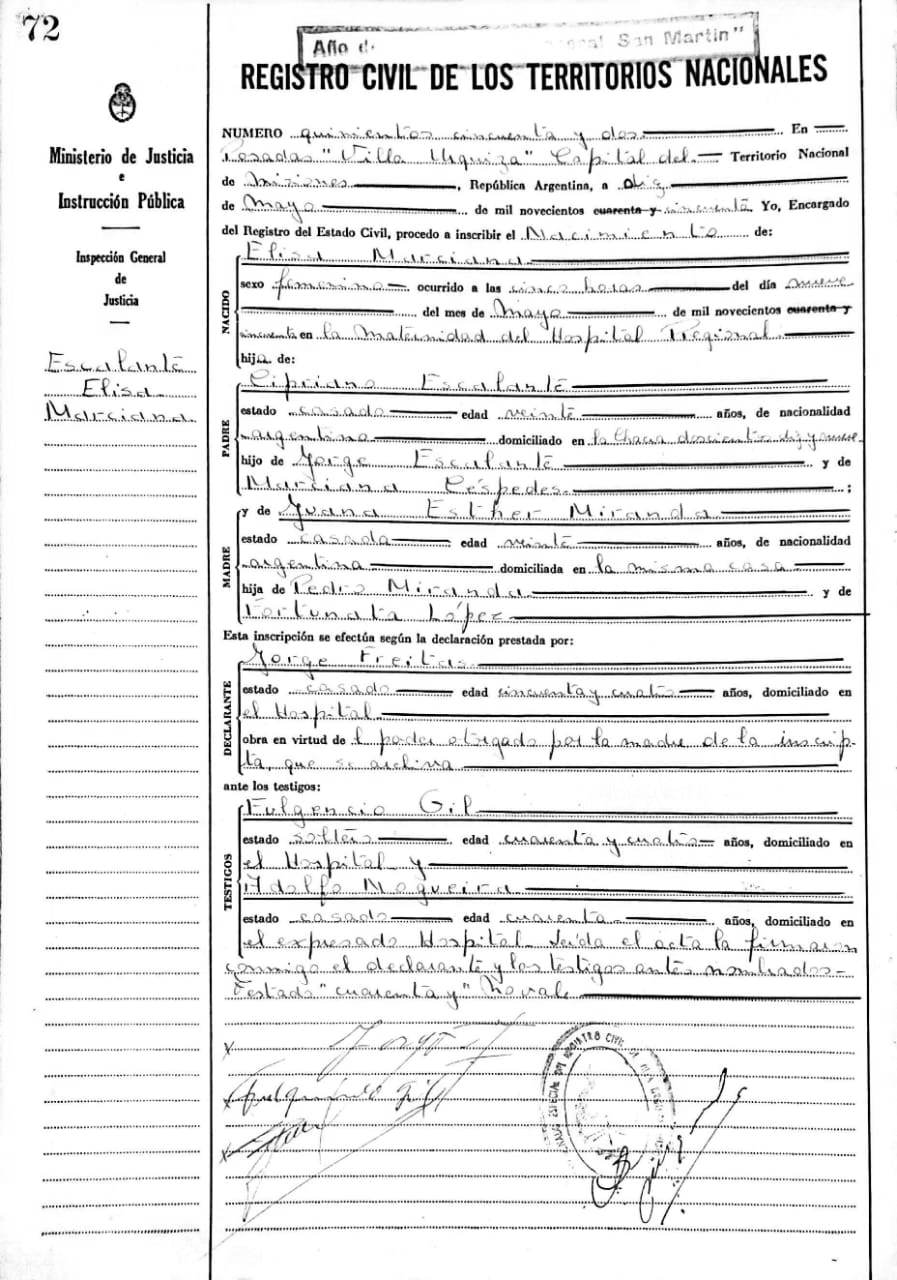 72
Año del General San Martin"
REGISTRO CIVIL DE LOS TERRITORIOS NACIONALES
Ministerio de Justicia
e
Instrucción Pública
Inspección General
de
Justicia
Escalante
Elisa
Marciana
NUMERO quinientos cincuenta y dos En
Posadas "Villa Urquiza" Capital del Territorio Nacional
de Misiones, República Argentina, a diez
de Mayo de mil novecientos cuarenta y cincuenta Yo, Encargado
del Registro del Estado Civil, procedo a inscribir el Nacimiento de:
NACIDO
Elisa Marciana
sexo femenino ocurrido a las cinco horas del día nueve
del mes de Mayo de mil novecientos cuarenta y
cincuenta en la Maternidad del Hospital Regional
hija de:
PADRE
Cipriano Escalante
estado casado edad veinte años, de nacionalidad
argentino domiciliado en la Chacra doscientos diez y nueve
hijo de Jorge Escalante y de
Marciana Céspedes ;
MADRE
y de Juana Esther Miranda
estado casada edad veinte años, de nacionalidad
argentina domiciliada en la misma casa
hija de Pedro Miranda y de
Fortunata López
Esta inscripción se efectúa según la declaración prestada por:
DECLARANTE
Jorge Freitas
estado casado edad cincuenta y cuatro años, domiciliado en
el Hospital
obra en virtud de l poder otorgado por la madre de la inscrip-
ta, que se archiva
ante los testigos:
TESTIGOS
Fulgencio Gil
estado soltero edad cuarenta y cuatro años, domiciliado en
el Hospital y
Adolfo Nogueira
estado casado edad cuarenta años, domiciliado en
el expresado Hospital. Leída el acta la firmaron
conmigo el declarante y los testigos antes nombrados-
Testado "cuarenta y" No vale
x
x
x
REGISTRO CIVIL